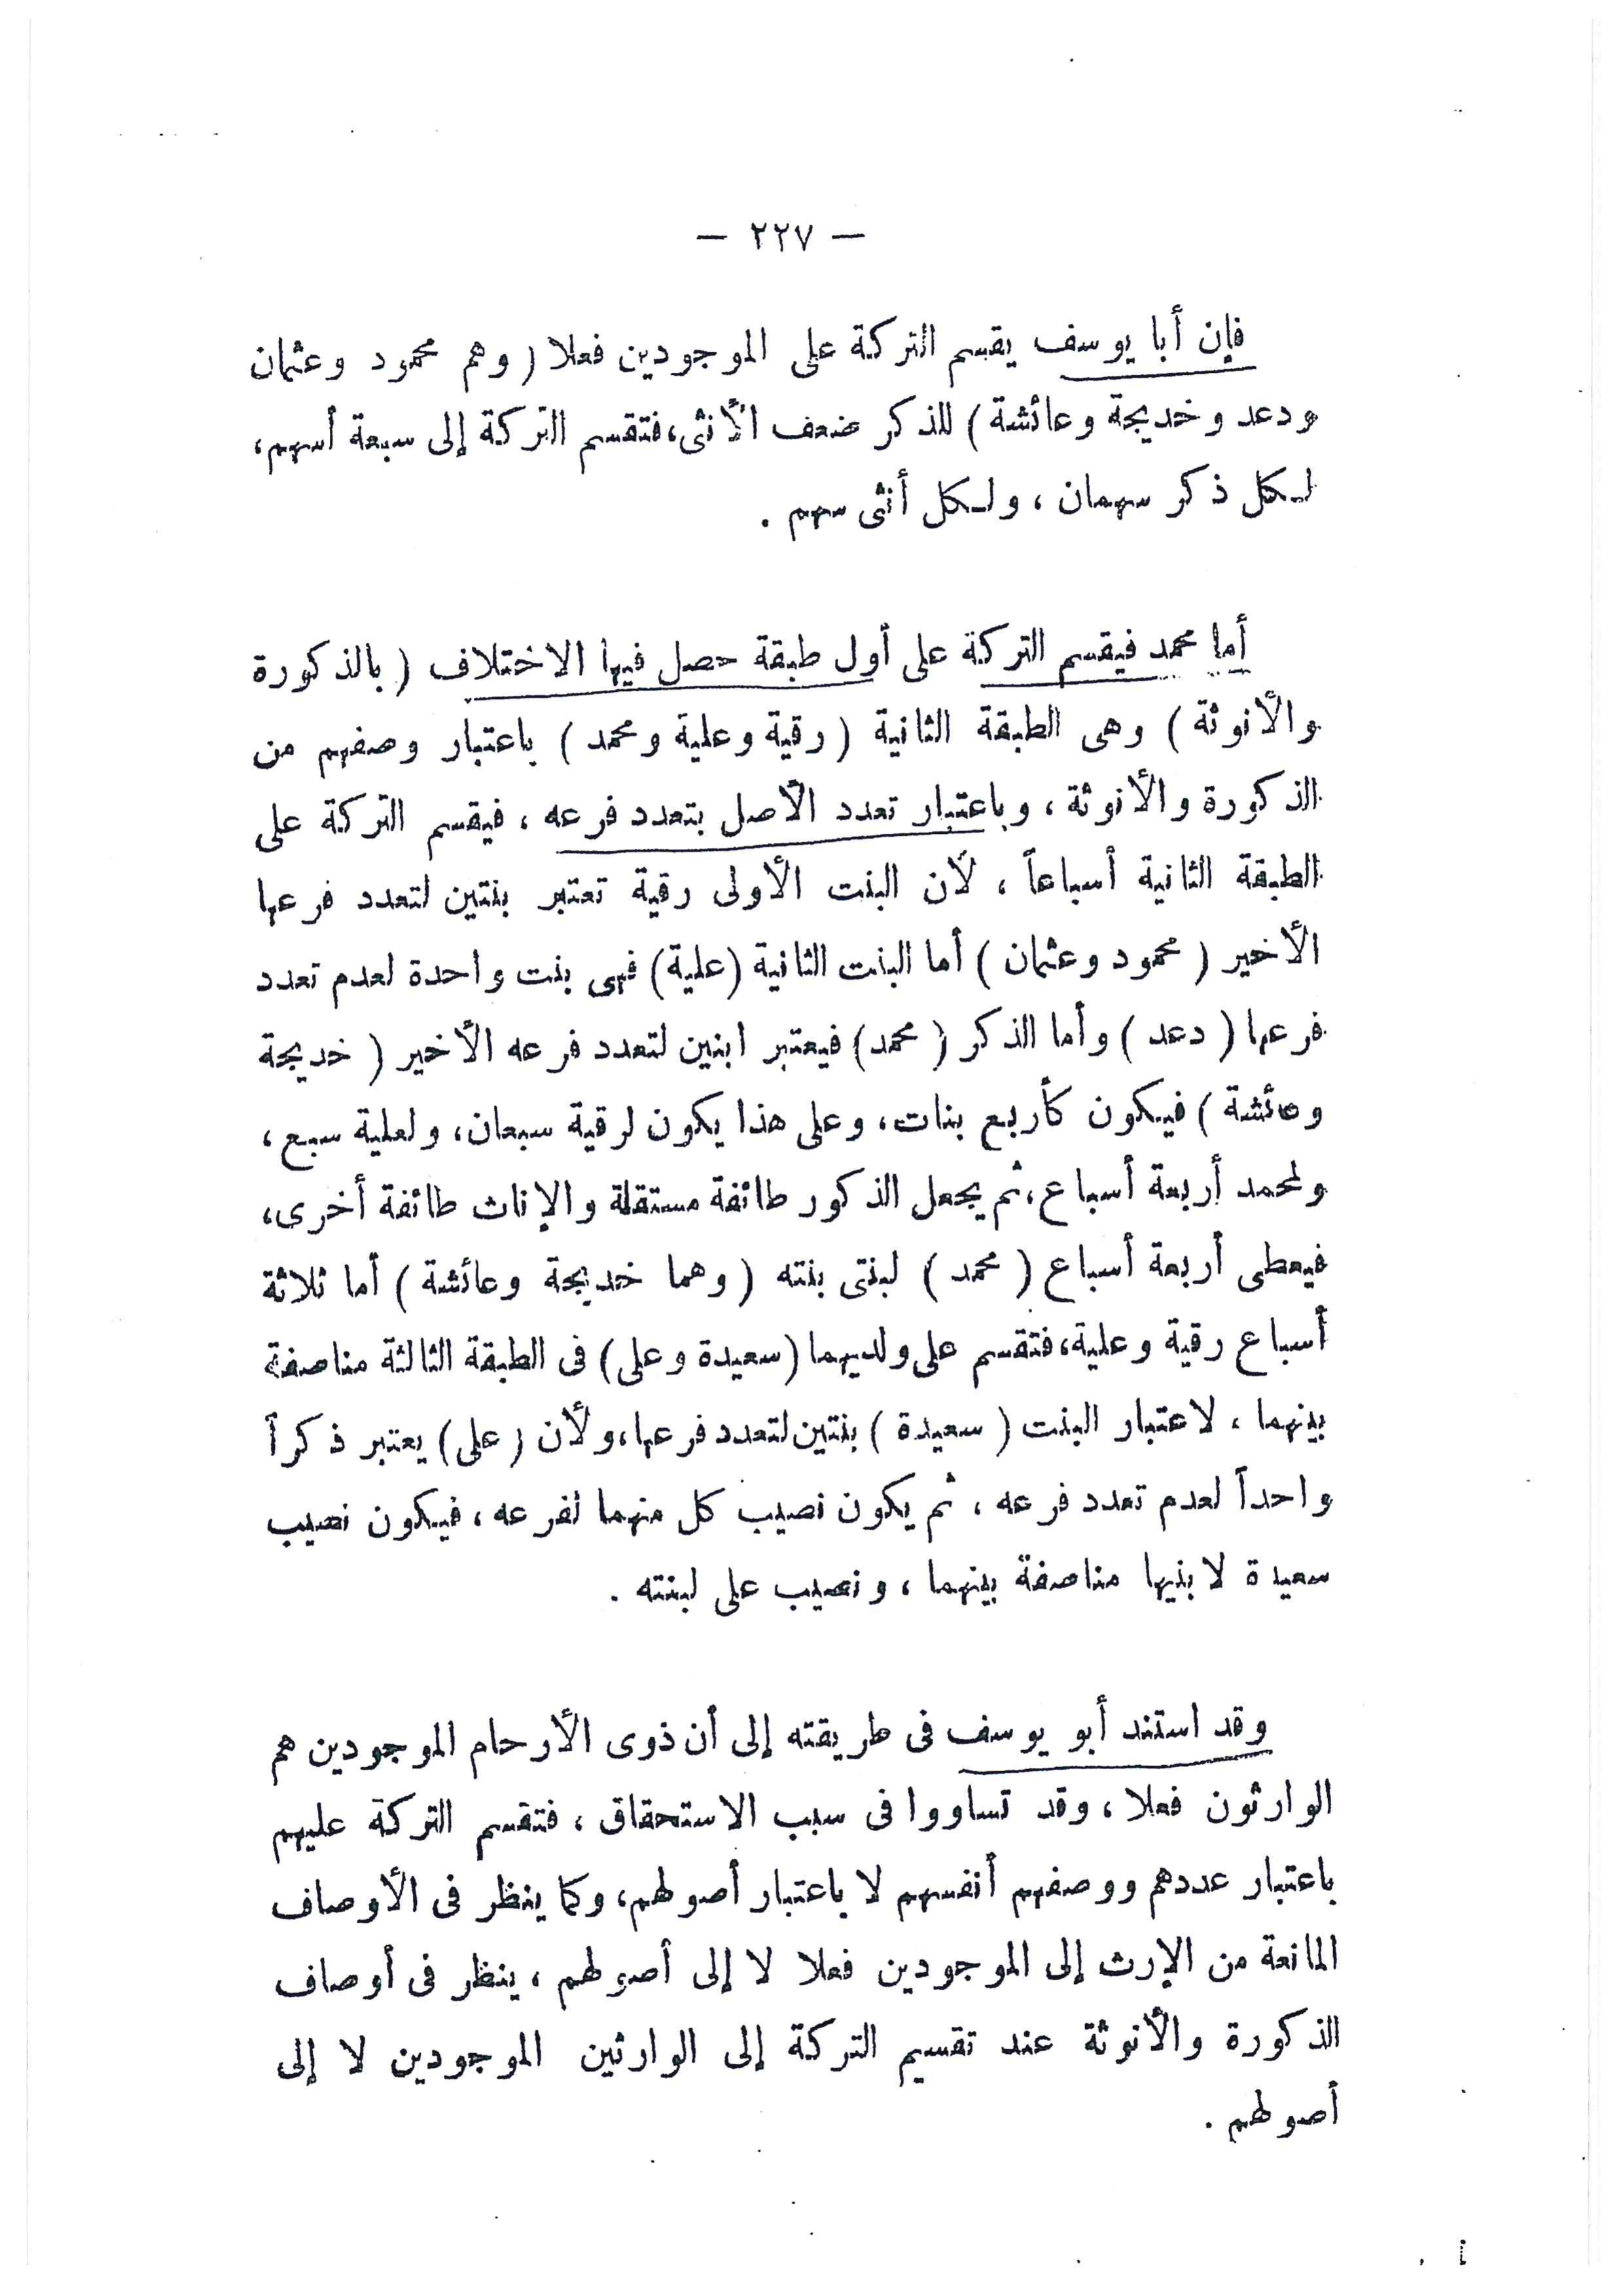 — ٢٢٧ —
فإن أبا يوسف يقسم التركة على الموجودين فعلا ( وهم محمود وعثمان
ودعد وخديجة وعائشة ) للذكر ضعف الأنثى، فتقسم التركة إلى سبعة أسهم،
لكل ذكر سهمان ، ولكل أنثى سهم .
أما محمد فيقسم التركة على أول طبقة حصل فيها الاختلاف ( بالذكورة
والأنوثة ) وهى الطبقة الثانية ( رقية وعلية ومحمد ) باعتبار وصفهم من
الذكورة والأنوثة ، وباعتبار تعدد الأصل بتعدد فرعه ، فيقسم التركة على
الطبقة الثانية أسباعاً ، لأن البنت الأولى رقية تعتبر بنتين لتعدد فرعها
الأخير ( محمود وعثمان ) أما البنت الثانية (علية) فهى بنت واحدة لعدم تعدد
فرعها ( دعد ) وأما الذكر ( محمد) فيعتبر ابنين لتعدد فرعه الأخير ( خديجة
وعائشة ) فيكون كأربع بنات، وعلى هذا يكون لرقية سبعان، ولعلية سبع ،
ولمحمد أربعة أسباع، ثم يجعل الذكور طائفة مستقلة والإناث طائفة أخرى،
فيعطى أربعة أسباع ( محمد ) لبنتى بنته ( وهما خديجة وعائشة ) أما ثلاثة
أسباع رقية وعلية، فتقسم على ولديهما (سعيدة وعلى) فى الطبقة الثالثة مناصفة
بينهما ، لاعتبار البنت ( سعيدة ) بنتين لتعدد فرعها، ولأن (على) يعتبر ذكراً
واحداً لعدم تعدد فرعه ، ثم يكون نصيب كل منهما لفرعه ، فيكون نصيب
سعيدة لابنيها مناصفة بينهما ، ونصيب على لبنته .
وقد استند أبو يوسف فى طريقته إلى أن ذوى الأرحام الموجودين هم
الوارثون فعلا ، وقد تساووا فى سبب الاستحقاق ، فتقسم التركة عليهم
باعتبار عددهم ووصفهم أنفسهم لا باعتبار أصولهم، وكما ينظر فى الأوصاف
المانعة من الإرث إلى الموجودين فعلا لا إلى أصولهم ، ينظر فى أوصاف
الذكورة والأنوثة عند تقسيم التركة إلى الوارثين الموجودين لا إلى
أصولهم .